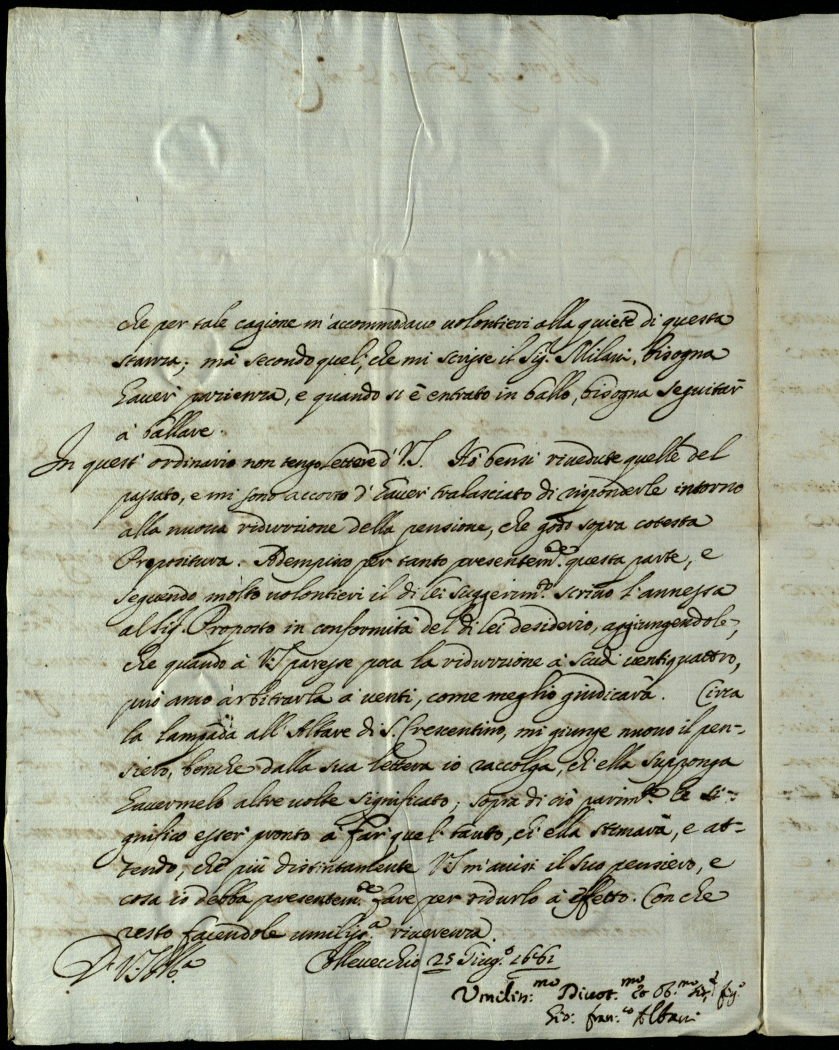 che per tale cagione m'accommodavo uolontieri alla quiete di questa
stanza; mà secondo quel, che mi scrisse il Sig.r Milani, bisogna
hauer pazienza, e quando si è entrato in ballo, bisogna seguitar
à ballare.
In quest'ordinario non tengo lettere d'V.S. Hò bensi riuedute quelle del
passato, e mi sono accorto d'hauer tralasciato di risponderle intorno
alla nuoua riduzzione della pensione, che godo sopra cotesta
Propositura. Adempisco per tanto presentem.te questa parte, e
seguendo molto uolontieri il di lei suggerim.to scriuo l'annessa
al Sig.r Proposto in conformità del di lei desiderio, aggiungendole,
che quando à V.S. paresse poca la riduzzione à scudi uentiquattro,
può anco arbitrarla à uenti, come meglio giudicarà. Circa
la lampada all'Altare di S. Crescentino, mi giunge nuouo il pen-
siero, benche dalla sua lettera io raccolga, ch'ella supponga
hauermelo altre uolte significato; sopra di ciò parim.te le si-
gnifico esser pronto à far quel tanto, ch'ella stimarà, e at-
tendo, che più distintamente V.S. m'auisi il suo pensiero, e
cosa io debba presentem.te fare per ridurlo à effetto. Con che
resto facendole umiliss.a riuerenza.
D. V.S. Ill.ma
Colleuecchio 25 Giug.o 1661
Umilis.mo Diuot.mo et Ob.mo
Gio: Fran.co Albani